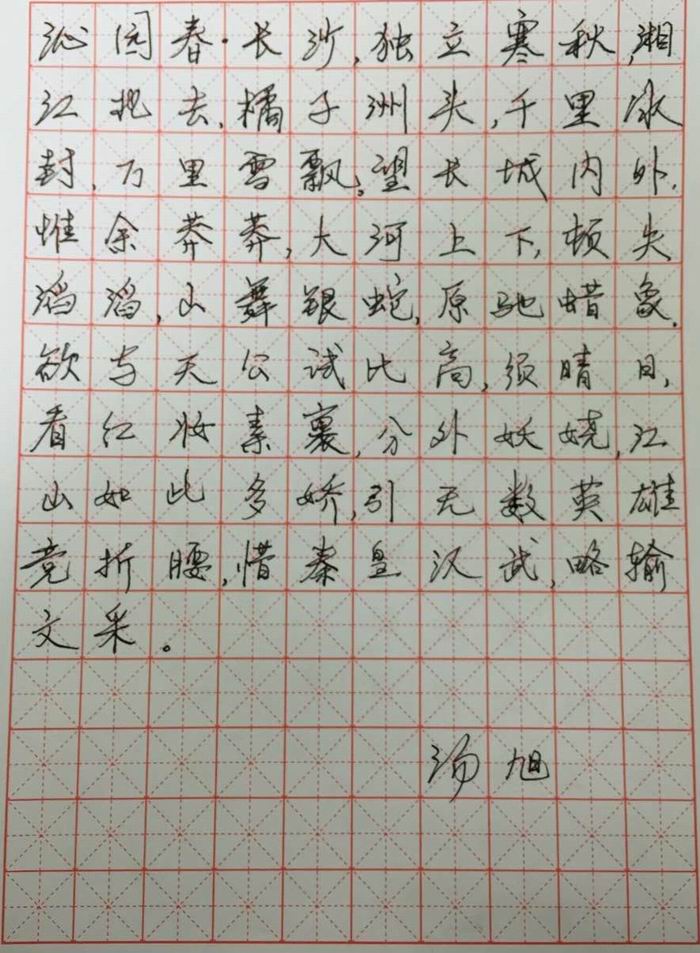 沁园春·长沙,独立寒秋,湘
江把去,橘子洲头,千里冰
封,万里雪飘。望长城内外,
惟余莽莽,大河上下,顿失
滔滔,山舞银蛇,原驰蜡象,
欲与天公试比高,须晴日,
看红妆素裹,分外妖娆,江
山如此多娇,引无数英雄
竞折腰,惜秦皇汉武,略输
文采。
汤旭